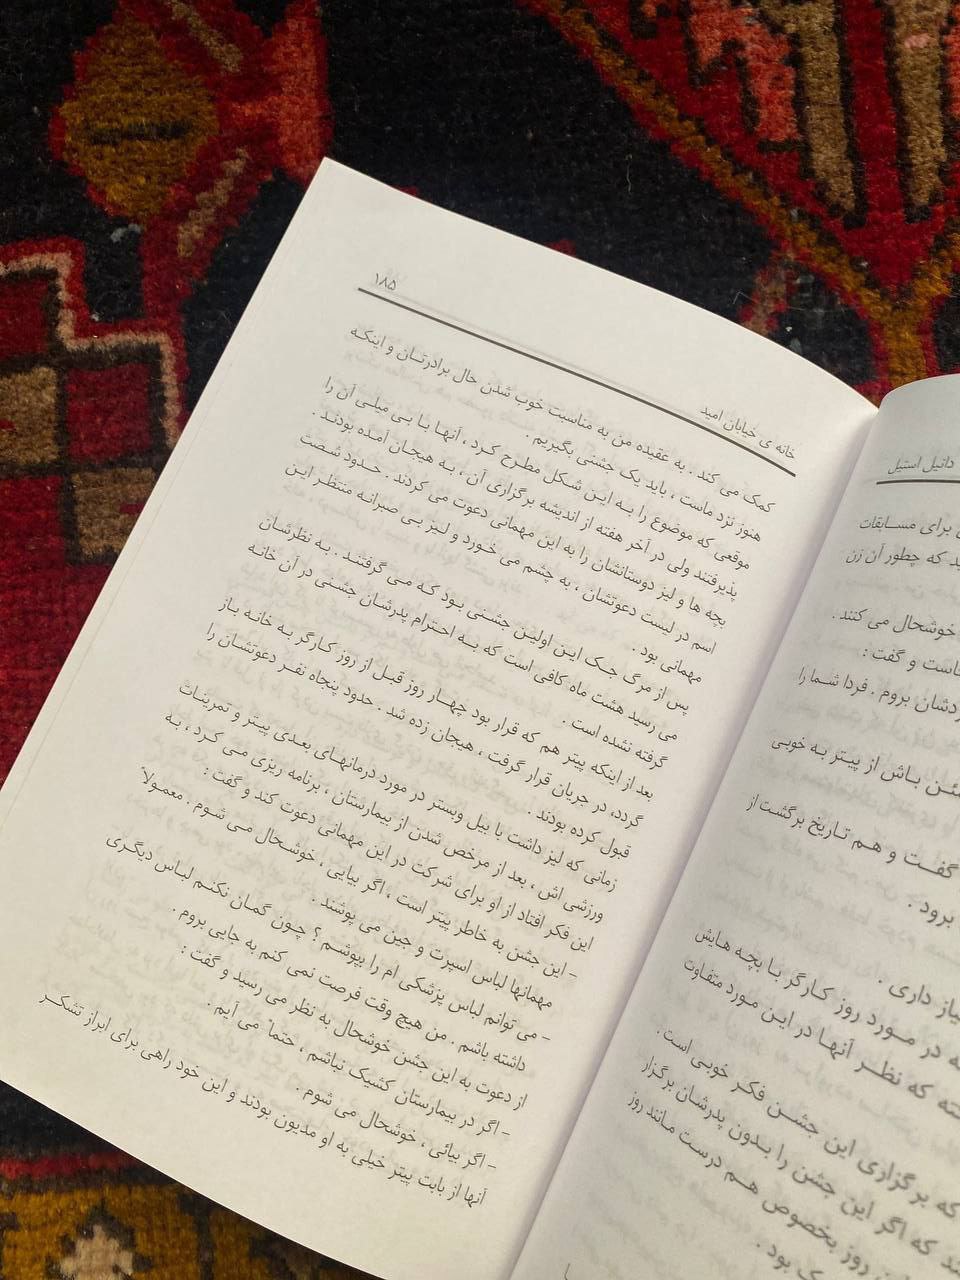 دانیل استیل
برای مسابقات
ید که چطور آن زن
خوشحال می کنند .
خاست و گفت :
دشان بروم . فردا شما را
ئن باش از پیتر به خوبی
گفت و هم تاریخ برگشت از
برود .
یاز داری .
ه در مورد روز کارگر با بچه هایش
ته که نظر آنها در این مورد متفاوت
که برگزاری این جشن فکر خوبی است .
ند که اگر این جشن را بدون پدرشان برگزار
روز بخصوص هم درست مانند روز
ک بود .
خانه ی خیابان امید ۱۸۵
کمک می کند . به عقیده من به مناسبت خوب شدن حال برادرتان و اینکه
هنوز نزد ماست ، باید یک جشنی بگیریم .
موقعی که موضوع را به این شکل مطرح کرد ، آنها با بی میلی آن را
پذیرفتند ولی در آخر هفته از اندیشه برگزاری آن ، به هیجان آمده بودند .
بچه ها و لیز دوستانشان را به این مهمانی دعوت می کردند . حدود شصت
اسم در لیست دعوتشان ، به چشم می خورد و لیز بی صبرانه منتظر این
مهمانی بود .
پس از مرگ جک این اولین جشنی بود که می گرفتند . به نظرشان
می رسید هشت ماه کافی است که به احترام پدرشان جشنی در آن خانه
گرفته نشده است .
بعد از اینکه پیتر هم که قرار بود چهار روز قبل از روز کارگر به خانه باز
گردد، در جریان قرار گرفت ، هیجان زده شد . حدود پنجاه نفر دعوتشان را
قبول کرده بودند .
زمانی که لیز داشت با بیل وبستر در مورد درمانهای بعدی پیتر و تمرینات
ورزشی اش ، بعد از مرخص شدن از بیمارستان ، برنامه ریزی می کرد ، به
این فکر افتاد از او برای شرکت در این مهمانی دعوت کند و گفت :
- این جشن به خاطر پیتر است ، اگر بیایی ، خوشحال می شوم . معمولاً
مهمانها لباس اسپرت و جین می پوشند .
- می توانم لباس پزشکی ام را بپوشم ؟ چون گمان نکنم لباس دیگری
داشته باشم . من هیچ وقت فرصت نمی کنم به جایی بروم .
از دعوت به این جشن خوشحال به نظر می رسید و گفت :
- اگر در بیمارستان کشیک نباشم ، حتماً می آیم .
- اگر بیائی ، خوشحال می شوم .
آنها از بابت پیتر خیلی به او مدیون بودند و این خود راهی برای ابراز تشکر